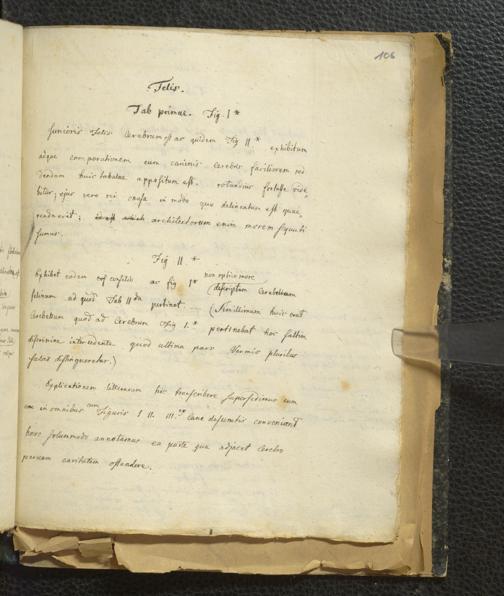 106
Felis.
Tab primae. Fig. I *
Junioris Felis Cerebrum est ac quidem Fig II * exhibitum
idque comparationem cum caninis cerebris faciliorem red
dendam huic tabulae appositum est. rotundius fortasse vide
bitur; ejus vero rei causa in modo quo delineatum est quae
renda erit; architectorum enim morem sequuti
sumus.
Fig II *
Exhibet eodem consilio ac fig I * non optico more
descriptum Cerebellum
felinum ad quod Tab II da pertinet. (Simillimum huic erat
Cerebellum quod ad Cerebrum Fig I * pertinebat hoc saltim
discrimine intercedente quod ultima pars Vermis pluribus
distingueretur.)
Applicationem litterarum hic transcribere supersedimus cum
in omnibus cum Figuris I II. III. Cane desumtis conveniant
hoc solummodo annotamus ea parte qua adjacet Cerebro
cavitatem ostendere.